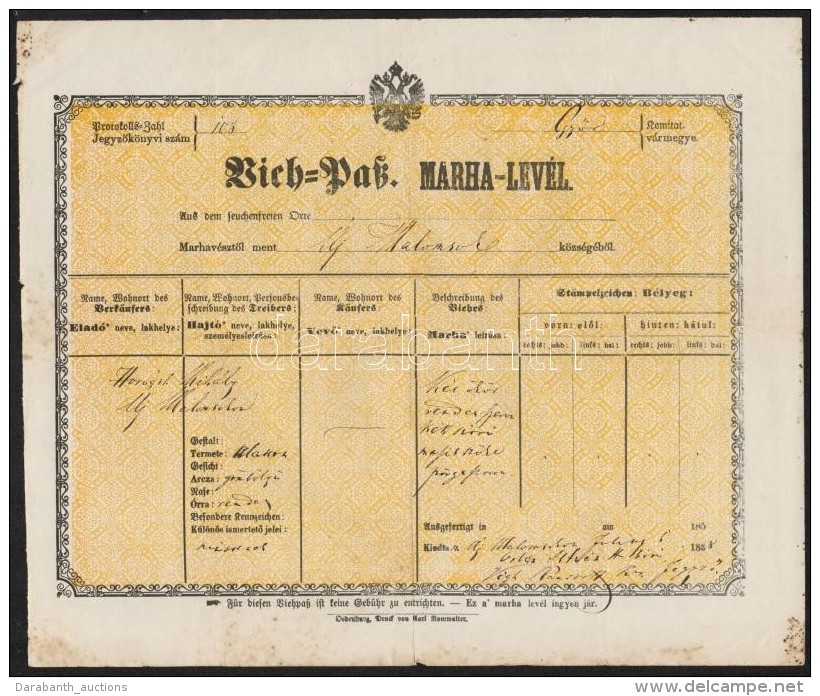 Protokolls=Zahl
Jegyzőkönyvi szám
Győr
Komitat=
vármegye.
Vieh=Paß. MARHA-LEVÉL.
Aus dem seuchenfreien Orte
Marhavésztől ment Uj Malomsok községéből.
Name, Wohnort des Verkäufers:
Eladó' neve, lakhelye:
Name, Wohnort, Personsbe=
schreibung des Treibers:
Hajtó' neve, lakhelye,
személyesleirása:
Name, Wohnort des Käufers:
Vevő' neve, lakhelye:
Beschreibung des Viehes:
Marha' leirása:
Stämpelzeichen: Bélyeg:
vorn: elől: hinten: hátul:
rechts: jobb: links: bal: rechts: jobb: links: bal:
Mihály
Uj Malomsokon
Gestalt:
Termete: alacson
Gesicht:
Arcza: gömbölyü
Nase:
Orra: rendes
Besondere Kennzeichen:
Különös ismertető jelei:
Két ökör
Ausgefertigt in am 185
Kiadta/z. Uj Malomsokon 1858
István
darabanth
Für diesen Viehpaß ist keine Gebühr zu entrichten. — Ez a' marha levél ingyen jár.
Oedenburg, Druck von Carl Romwalter.
Darabanth_auctions
delcampe.net